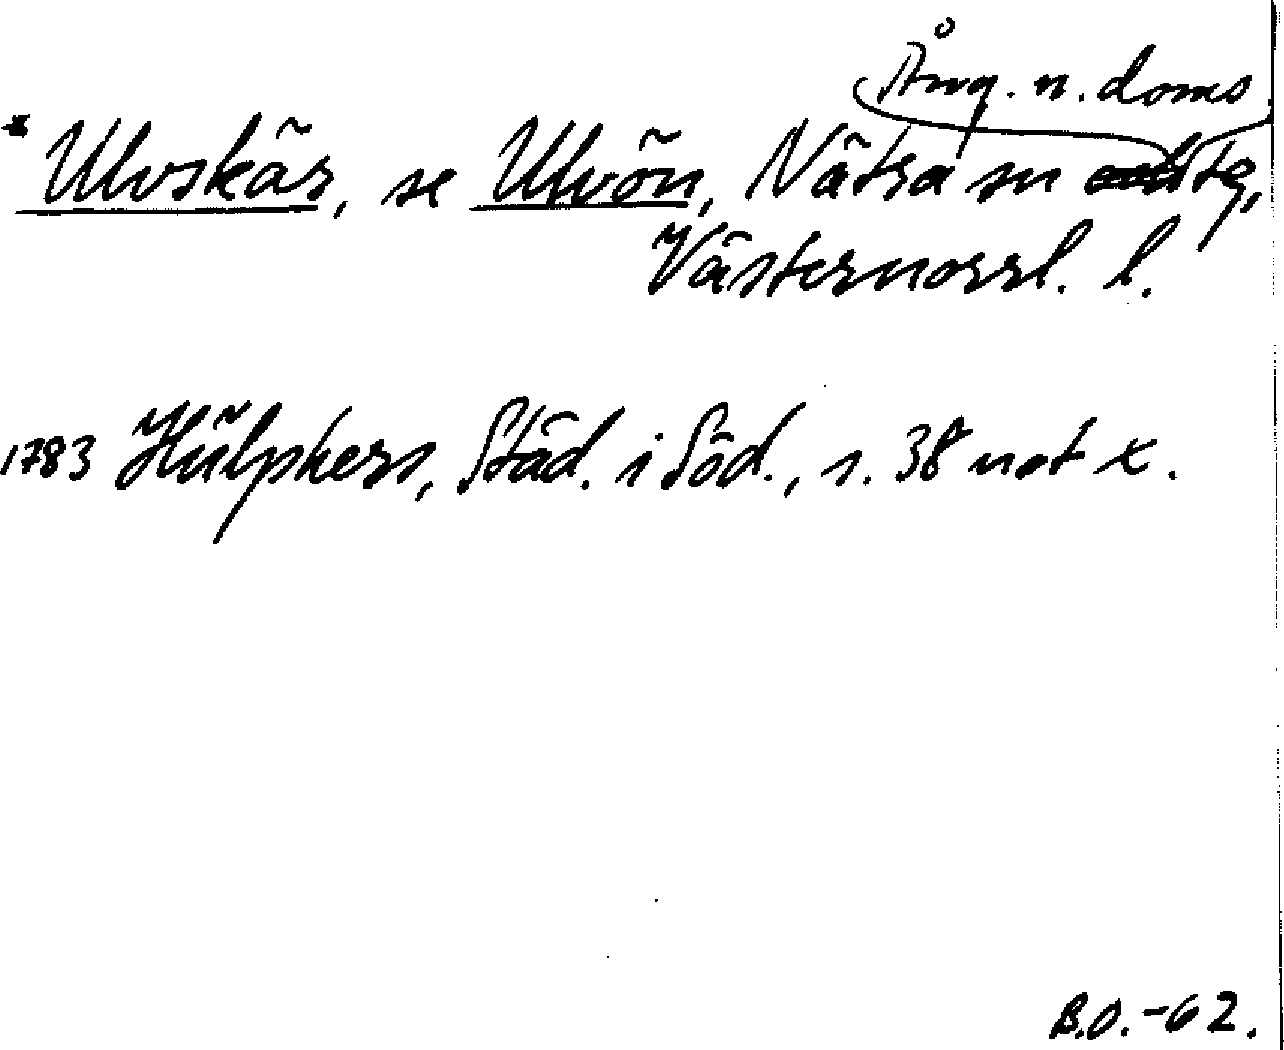 Ång. n. doms
* Ulvskär, se Ulvön, Nätra sn tg,
Västernorrl. l.
1783 Hülphers, Städ. i Söd., s. 38 not x.
B.O.-62.